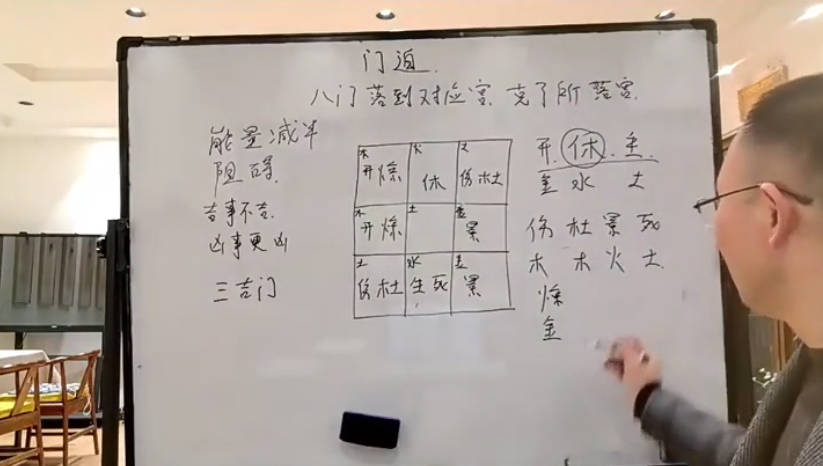 门迫.
八门落到对应宫.克了所落宫.
能量减半
阻碍.
吉事不吉.
凶事更凶
三吉门
木 火 土
开惊 休 伤杜
木 土 金
开惊 景
土 水 金
伤杜 生死 景
开.休.生.
金 水 土
伤 杜 景 死
木 木 火 土.
惊
金